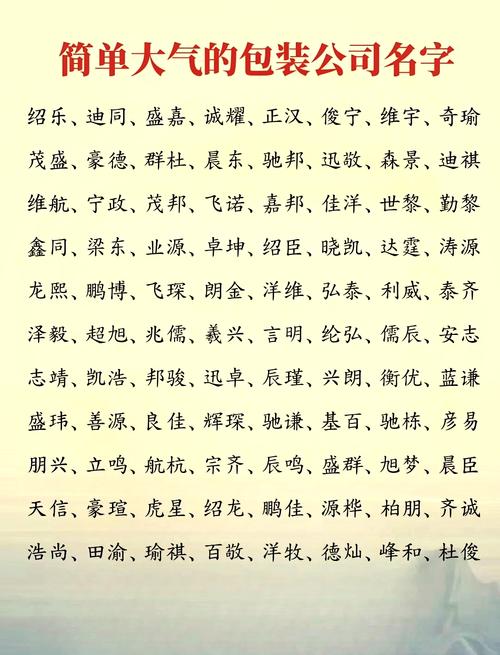 简单大气的包装公司名字
绍乐、迪同、盛嘉、诚耀、正汉、俊宁、维宇、奇瑜
茂盛、豪德、群杜、晨东、驰邦、迅敬、森景、迪祺
维航、宁政、茂邦、飞诺、嘉邦、佳洋、世黎、勤黎
鑫同、梁东、业源、卓坤、绍臣、晓凯、达霆、涛源
龙熙、鹏博、飞琛、朗金、洋维、弘泰、利威、泰齐
泽毅、超旭、兆儒、羲兴、言明、纶弘、儒辰、安志
志靖、凯浩、邦骏、迅卓、辰瑾、兴朗、衡优、蓝谦
盛玮、善源、良佳、辉琛、驰谦、基百、驰栋、彦易
朋兴、立鸣、航杭、宗齐、辰鸣、盛群、旭梦、晨臣
天信、豪瑄、虎星、绍龙、鹏佳、源桦、柏朋、齐诚
浩尚、田渝、瑜祺、百敬、洋牧、德灿、峰和、杜俊